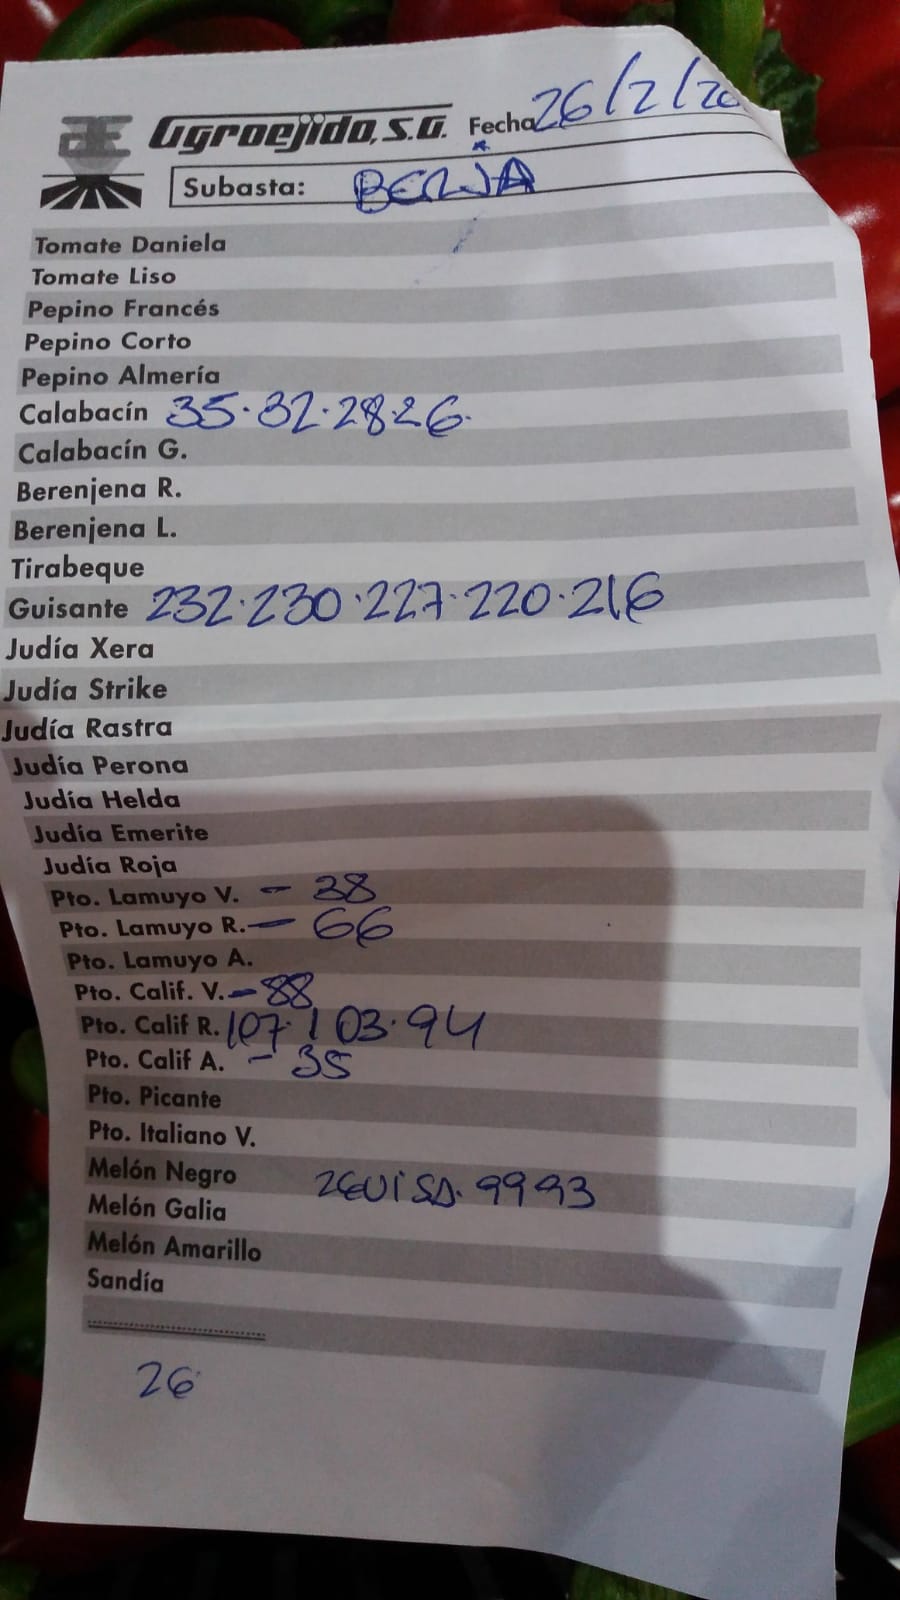 AE Agroejido, S.A. Fecha 26/2/20
Subasta: BERJA
Tomate Daniela
Tomate Liso
Pepino Francés
Pepino Corto
Pepino Almería
Calabacín 35.32.28.26.
Calabacín G.
Berenjena R.
Berenjena L.
Tirabeque
Guisante 232.230.227.220.216
Judía Xera
Judía Strike
Judía Rastra
Judía Perona
Judía Helda
Judía Emerite
Judía Roja
Pto. Lamuyo V. - 38
Pto. Lamuyo R. - 66
Pto. Lamuyo A.
Pto. Calif. V. - 88
Pto. Calif R. 107.103.94
Pto. Calif A. - 35
Pto. Picante
Pto. Italiano V.
Melón Negro
99 93
Melón Galia
Melón Amarillo
Sandía
26